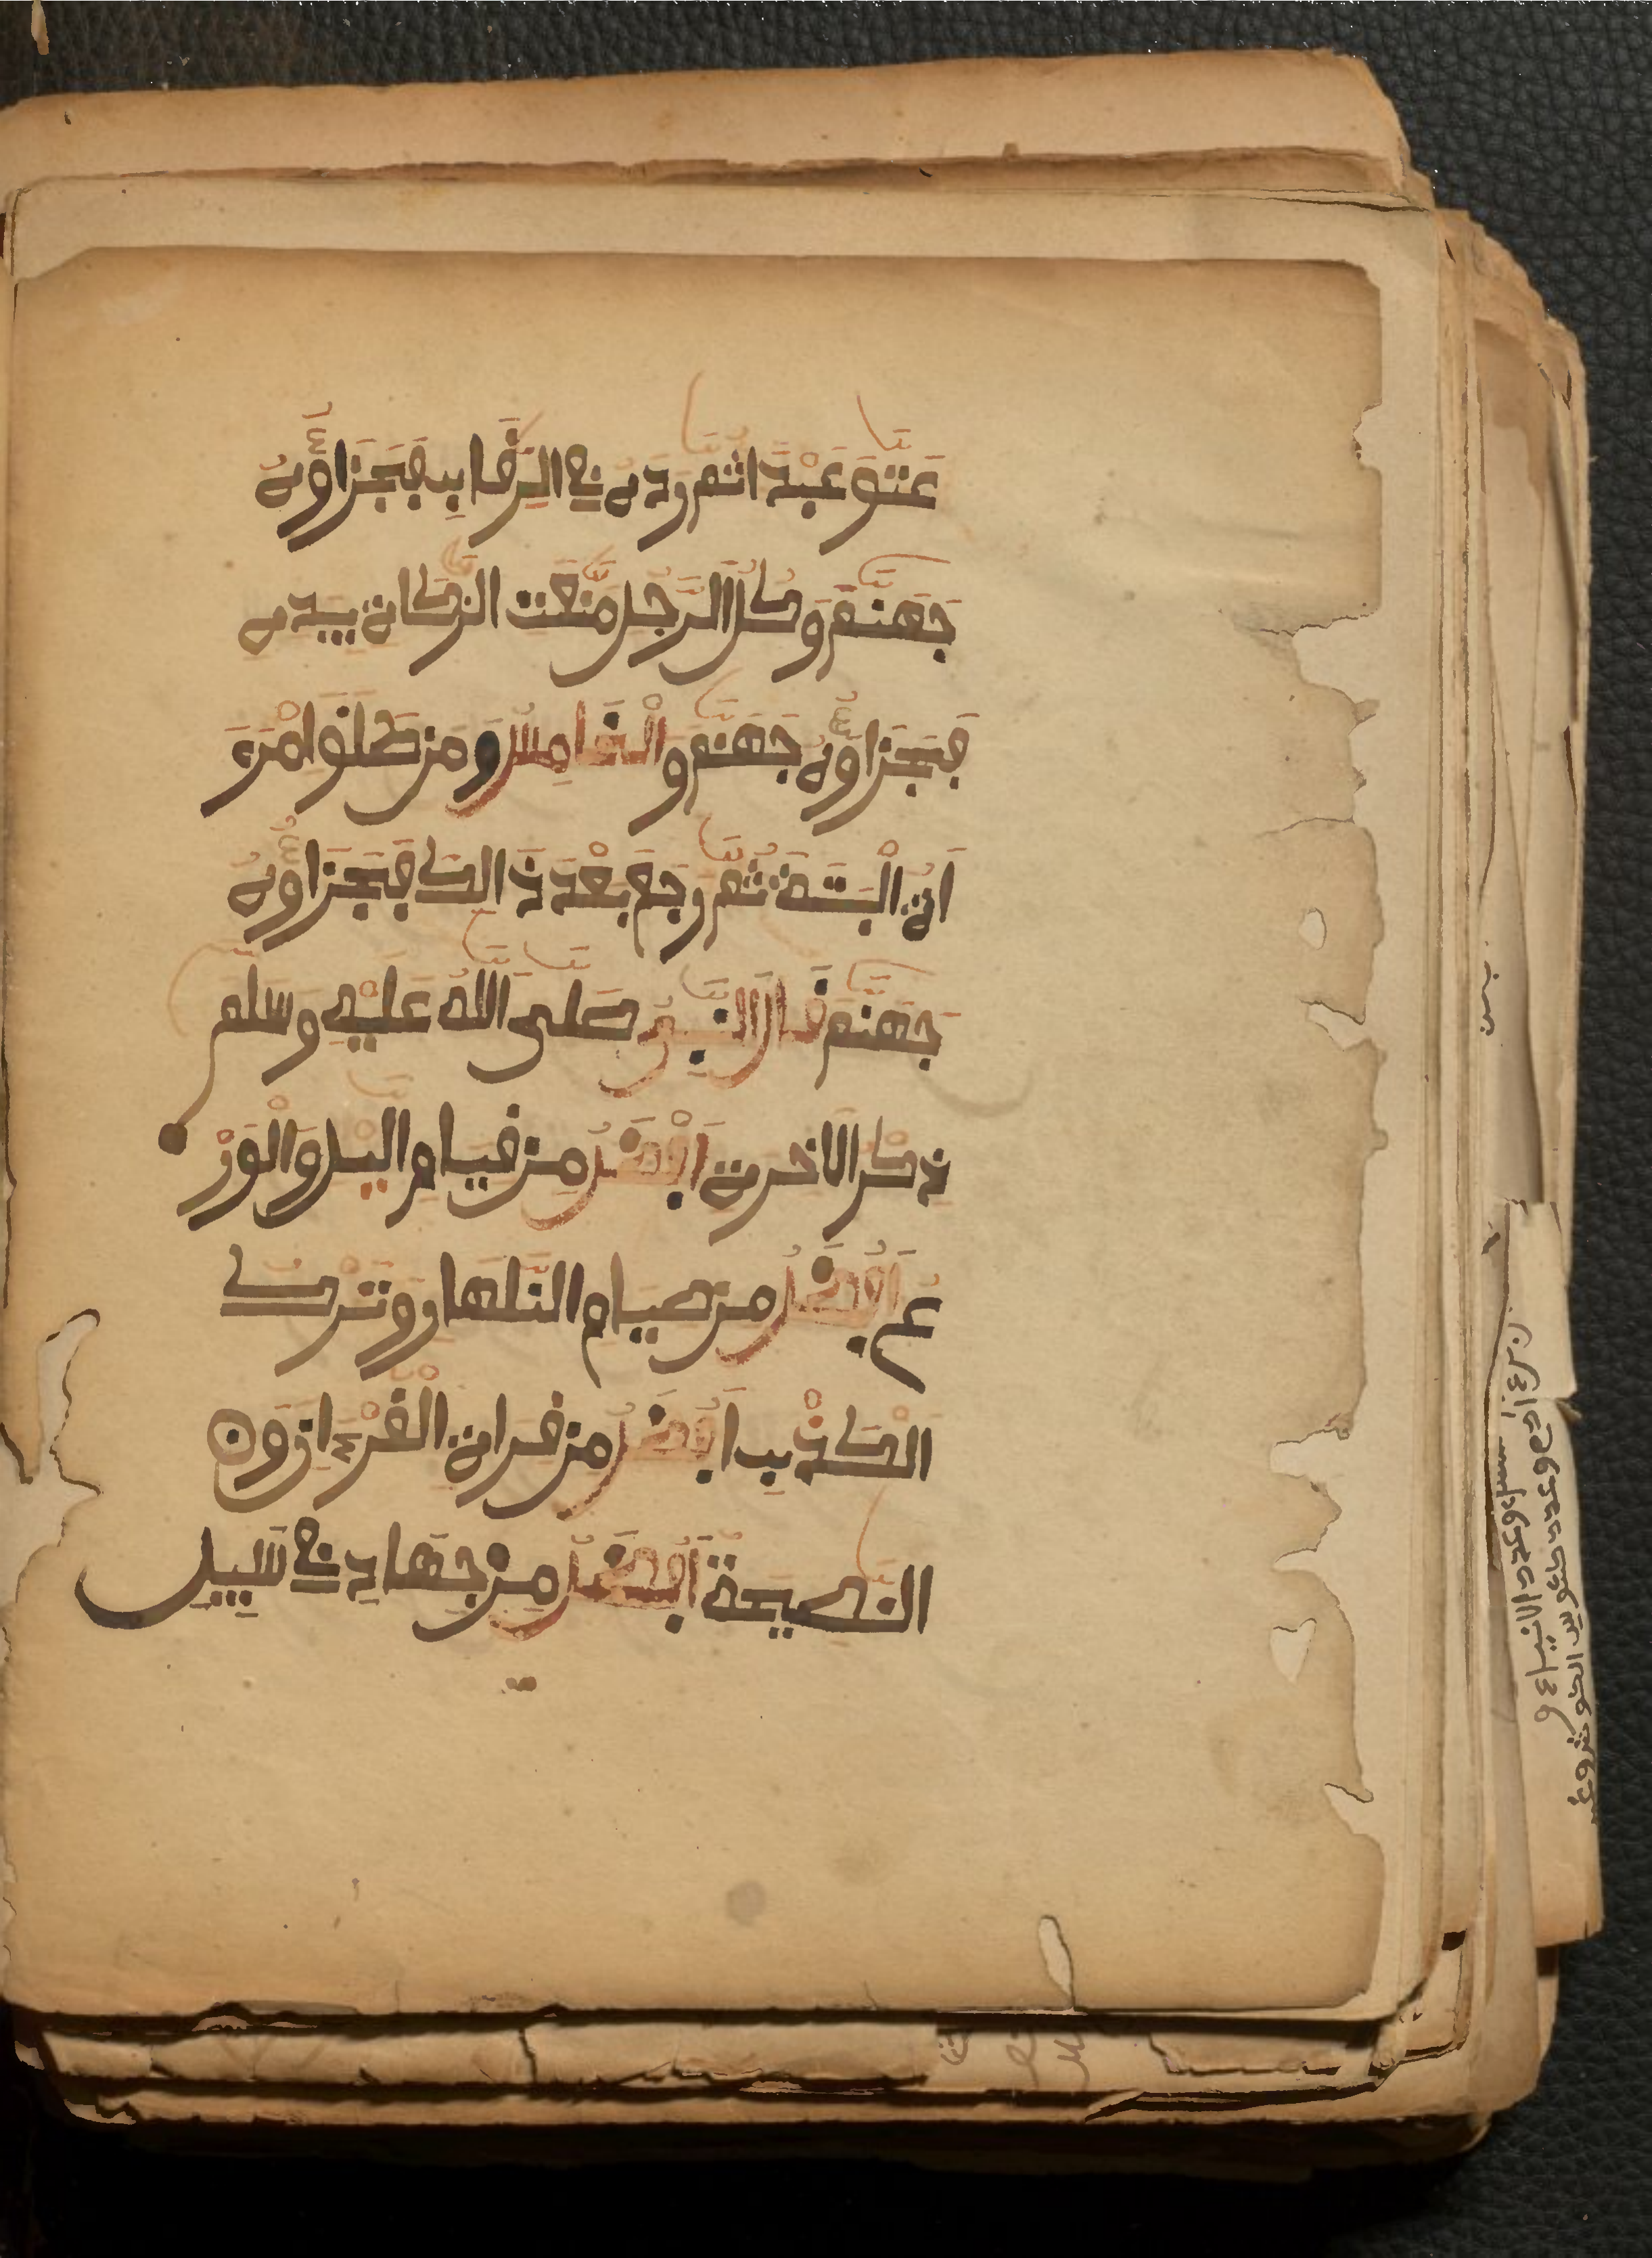 عَتَّقَ عَبْدَ اثُمَّ رَدَّهُ فِي الرِّقَابِ فَجَزَاؤُهُ
جَهَنَّمَ وَكُلُّ الرَّجُلِ مَّنَعَتِ الزَّكَاةَ بِيَدِهِ
فَجَزَاؤُهُ جَهَنَّمَ وَالْخَامِسُ وَمَن طَلَّقَ امْرَ
اَتَهُ الْبَتَّةَ ثُمَّ رَجَعَ بَعْدَ ذَالِكَ فَجَزَاؤُهُ
جَهَنَّمَ قَالَ النَّبِيُّ صَلَّى اللَّهُ عَلَيْهِ وَسَلَّمَ
ذِكْرُ الْآخِرَةِ اَفْضَلُ مِن قِيَامِ الَّيْلِ وَالْوَرْ
عُ اَفْضَلُ مِن صِيَامِ النَّهَارِ وَتَرْكُ
الْكَذِبِ اَفْضَلُ مِن قِرَاةِ الْقُرْءَانِ وَ
النَّصِيحَةُ اَفْضَلُ مِن جِهَادِ فِي سَبِيلِ